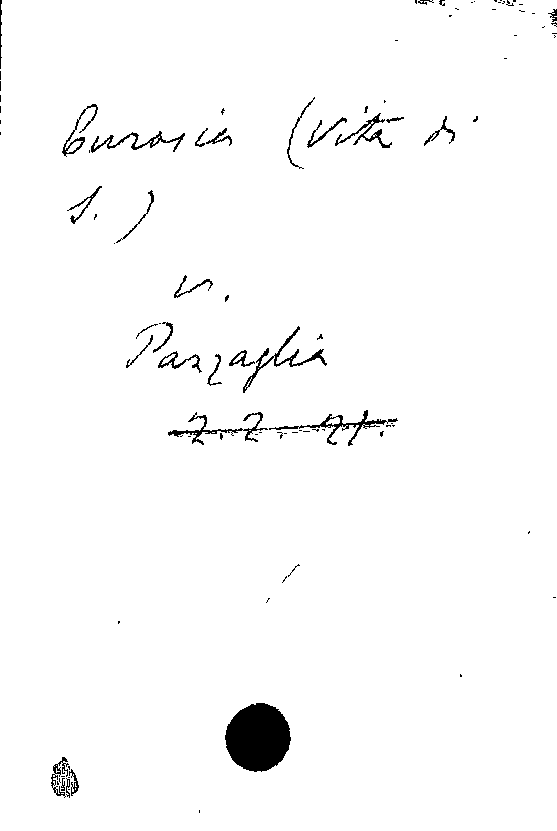 Eurosia (Vita di
S.)
v.
Pazzaglia
Z.Z. 21.